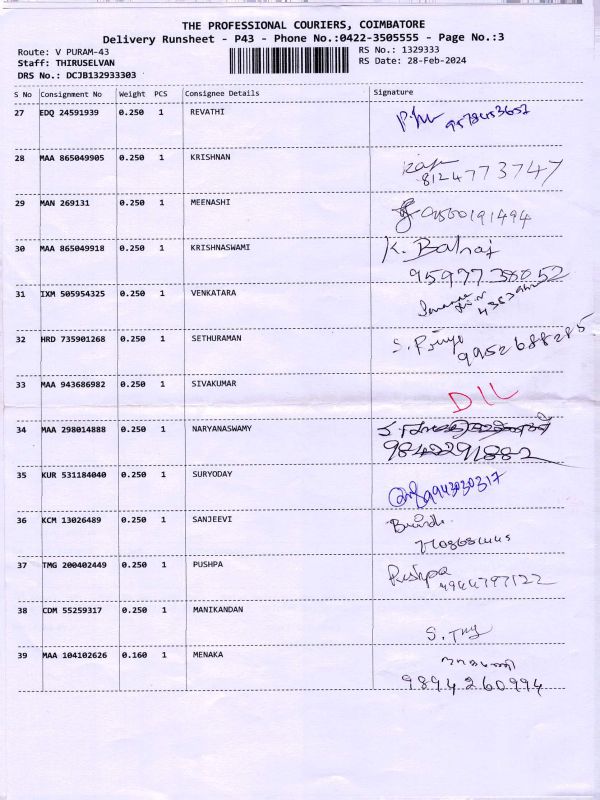 THE PROFESSIONAL COURIERS, COIMBATORE
Delivery Runsheet - P43 - Phone No.:0422-3505555 - Page No.:3
Route: V PURAM-43
Staff: THIRUSELVAN
DRS No.: DCJB132933303
RS No.: 1329333
RS Date: 28-Feb-2024
S No Consignment No Weight PCS Consignee Details Signature
27 EDQ 24591939 0.250 1 REVATHI
28 MAA 865049905 0.250 1 KRISHNAN
8124773747
29 MAN 269131 0.250 1 MEENASHI 9500191494
30 MAA 865049918 0.250 1 KRISHNASWAMI K. Balraj
9597738052
31 IXM 505954325 0.250 1 VENKATARA
32 HRD 735901268 0.250 1 SETHURAMAN S. Priya 9952688285
33 MAA 943686982 0.250 1 SIVAKUMAR DIL
34 MAA 298014888 0.250 1 NARYANASWAMY
9842291882
35 KUR 531184040 0.250 1 SURYODAY 9943030317
36 KCM 13026489 0.250 1 SANJEEVI
37 TMG 200402449 0.250 1 PUSHPA Pushpa
38 CDM 55259317 0.250 1 MANIKANDAN
39 MAA 104102626 0.160 1 MENAKA
9894260994